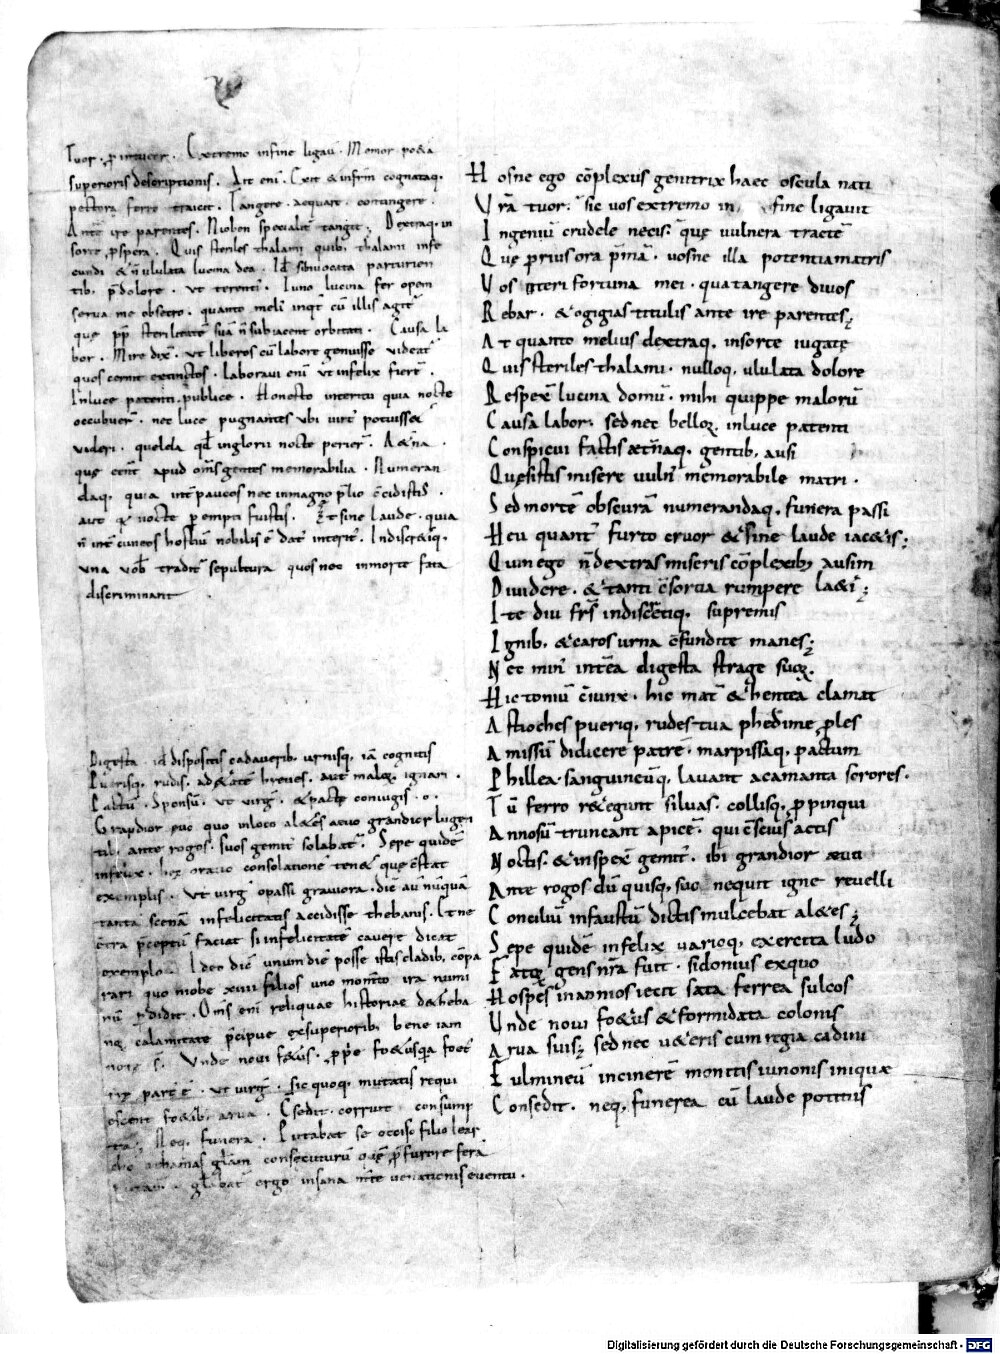 Tuor. ꝑ intueor. Extremo infine ligaui. Memor po&a
superioris descriptionis. Ait eni. Exit & infrm̄ cognataq.
pectora ferro traicit. Tangere. aequare. contingere.
Ante ire parentes. Nioben specialit̄ tangit. Dextraq. in
sorte ꝓspera. Quis steriles thalami quib. thalami infe
cundi & n̄ ululata lucina dea. Id ē sibi uocata parturien
tib. p̄ dolore. ut terenti. Iuno lucina fer opem
serua me obsecro. quanto meli inqt̄ cū illis agit̄
que ppt̄ sterilitatē suā n̄ subiacent orbitati. Causa la
bor. Mire dix̄. ut liberos cū labore genuisse uideat̄
quos cernit extinctos. laboraui eni ut infelix fierē.
Inluce patenti. publice. Honesto interitu quia nocte
occubuer̄. nec luce pugnantes ubi uirt potuisse&
uideri. querela qd̄ inglorii nocte perier̄. A&̄na.
que eent̄ apud om̄s gentes memorabilia. Numeran
daq. quia int̄ paucos nec inmagno p̄lio cecidistis.
aut qa nocte ꝑempti fuistis. Et sine laude. quia
n̄ int̄ cuneos hostiū nobilis ē dat̄ interit̄. Indiscretiq.
una uob̄ tradit̄ sepultura quos nec inmorte fata
discriminant.
Digesta id̄ dispositis cadauerib. urnisq. iā cognitis
Puerisq. rudis. ad&ate breues. aut maloꝝ ignari.
Pactū. Sponsū. ut uirḡ. & pacte coniugis. o.
Grandior euo quo inloco al&es aeuo grandior lugen
tib. ante rogos. suos gemit̄ solabat̄. Sepe quidē
infelix. hęc oratio consolationē ten& que cstat
exemplis. ut uirḡ opassi grauiora. dic̄ aū nūquā
tanta scenā infelicitatis accidisse thebanis. Et ne
c̄tra p̄ceptū faciat si infelicitatē cauere dicat
exemplo. Ideo dic̄ unum diē posse istis cladib. cōpa
rari quo niobe xiiii filios uno momto ira numi
nū ꝑdidit. Om̄s eni reliquae historiae de thеba
noꝝ calamitate p̄cipue exsuperiorib. bene iam
note s̄. Unde noui f&us. ꝓprie fo&usq̄a foet̄
ut uirḡ. sic quoq. mutatis requi
escent fo&ib. arua. Csedit. corruit consump
ta. Neq. funera. Putabat se occiso filio lear
cho athamas glam consecuturū quē ꝑ furore fera
putauit. glabat̄ ergo insana mte uenationis euentu.
Hosne ego cōplexus genitrix haec oscula nati
Urā tuor. sic uos extremo in fine ligauit
Ingeniū crudele necis. quę uulnera tractē
Quę prius ora p̄mā. uosne illa potentia matris
Uos uteri fortuna mei. qua tangere diuos
Rebar. & ogigias titulis ante ire parentes;
At quanto melius dextraq. insorte iugatę
Quis steriles thalami. nulloq. ululata dolore
Respex̄ lucina domū. mihi quippe malorū
Causa labor. sed nec belloꝝ inluce patenti
Conspicui factis aet̄naq. gentib. ausi
Quęsistis misere uuln̄ memorabile matri.
Sed mortē obscurā numerandaq. funera passi
Heu quant̄ furto cruor & sine laude iac&is;
Quin ego n̄ dextras miseris cōplexib; ausim
Diuidere. & tanti cōsortia rumpere la&i;
Ite diu frs̄ indiscretiq. supremis
Ignib. & caros urna cōfundite manes;
Nec min̄ intēa digesta strage suoꝝ.
Hic toniū ciunx. hic mat̄ & hentea clamat
Astioches pueriq. rudes tua phedime ꝓles
Amissū didicere patrē. marpissaq. pactum
Phillea. sanguineūq. lauant acamanta sorores.
Tū ferro r&egunt siluas. collisq. ꝓpinqui
Annosū truncant apicē. qui cscius actis
Noctis. & inspex̄ gemit̄. ibi grandior aeui
Ante rogos dū quisq. suo nequit igne reuelli
Conciliū infaustū dictis mulcebat al&es;
Sepe quidē infelix uarioq. exercita ludo
Fatoꝝ gens nr̄a fuit. sidonius exquo
Hospes in aonios iecit sata ferrea sulcos
Unde noui fo&us & formidata colonis
Arua suis; sed nec u&eris cum regia cadmi
Fulmineū incinerē monitis iunonis iniquae
Consedit. neq. funerea cū laude potitus
Digitalisierung gefördert durch die Deutsche Forschungsgemeinschaft - DFG